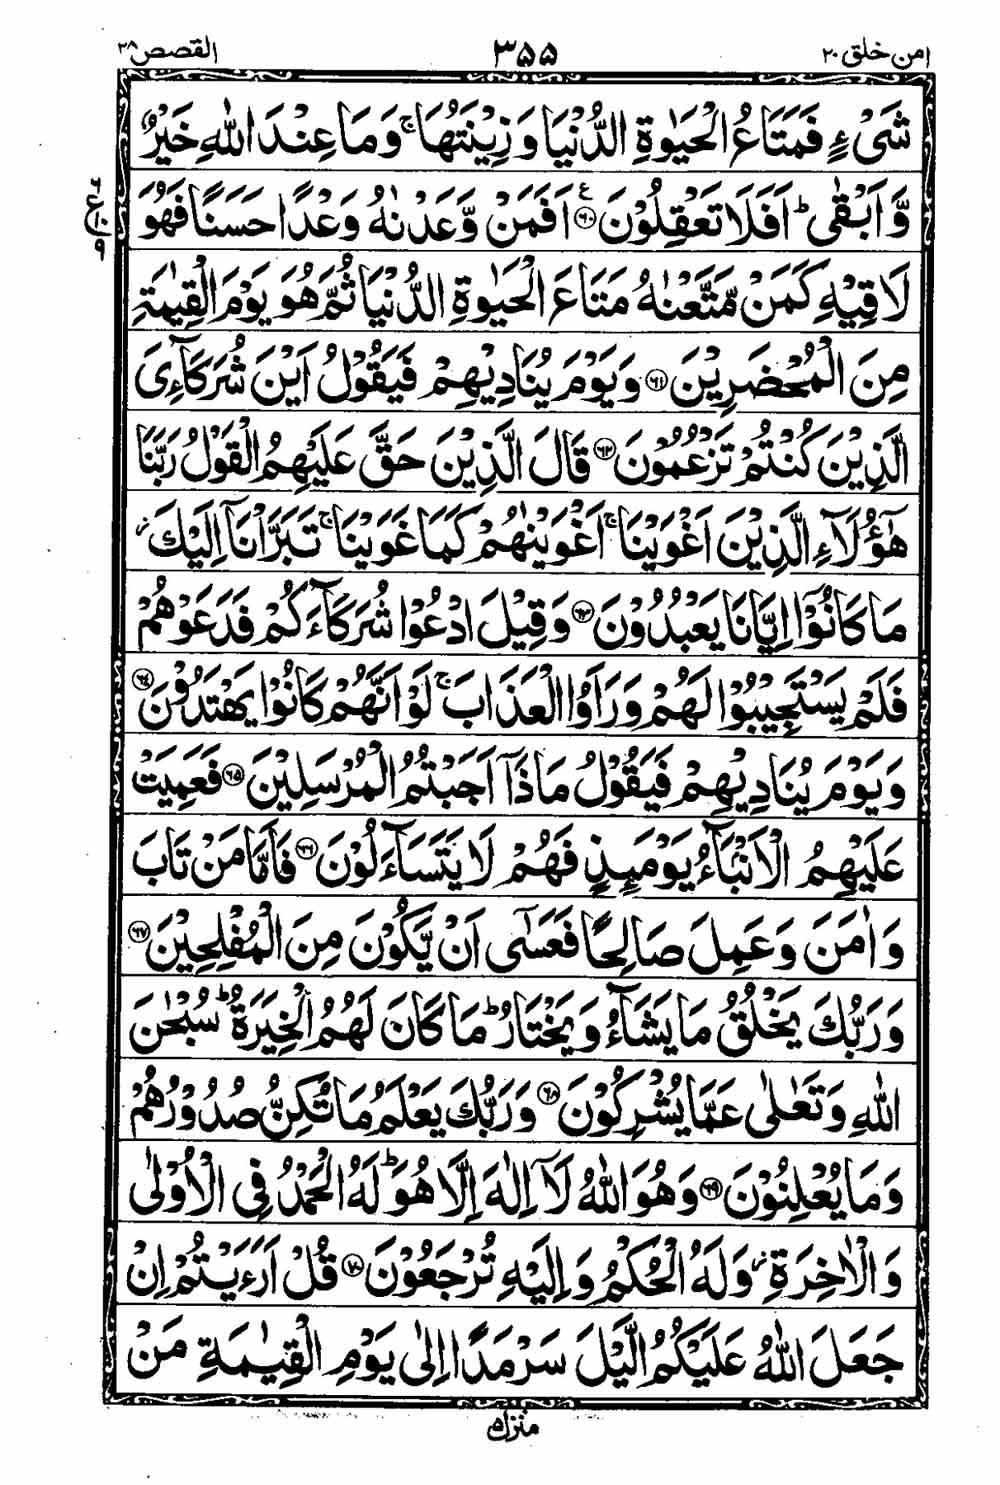 امن خلق ٢٠ ٣٥٥ القصص ٢٨
شَیْءٍ فَمَتَاعُ الْحَیٰوةِ الدُّنْیَا وَ زِیْنَتُهَا ۚ وَ مَا عِنْدَ اللّٰهِ خَیْرٌ
وَّ اَبْقٰی ؕ اَفَلَا تَعْقِلُوْنَ ﴿۶۰﴾ ع اَفَمَنْ وَّعَدْنٰهُ وَعْدًا حَسَنًا فَهُوَ
لَاقِیْهِ كَمَنْ مَّتَّعْنٰهُ مَتَاعَ الْحَیٰوةِ الدُّنْیَا ثُمَّ هُوَ یَوْمَ الْقِیٰمَةِ
مِنَ الْمُحْضَرِیْنَ ﴿۶۱﴾ وَ یَوْمَ یُنَادِیْهِمْ فَیَقُوْلُ اَیْنَ شُرَكَآءِیَ
الَّذِیْنَ كُنْتُمْ تَزْعُمُوْنَ ﴿۶۲﴾ قَالَ الَّذِیْنَ حَقَّ عَلَیْهِمُ الْقَوْلُ رَبَّنَا
هٰۤؤُلَآءِ الَّذِیْنَ اَغْوَیْنَا ۚ اَغْوَیْنٰهُمْ كَمَا غَوَیْنَا ۚ تَبَرَّاْنَاۤ اِلَیْكَ ؗ
مَا كَانُوْۤا اِیَّانَا یَعْبُدُوْنَ ﴿۶۳﴾ وَ قِیْلَ ادْعُوْا شُرَكَآءَكُمْ فَدَعَوْهُمْ
فَلَمْ یَسْتَجِیْبُوْا لَهُمْ وَ رَاَوُا الْعَذَابَ ۚ لَوْ اَنَّهُمْ كَانُوْا یَهْتَدُوْنَ ﴿۶۴﴾
وَ یَوْمَ یُنَادِیْهِمْ فَیَقُوْلُ مَاذَاۤ اَجَبْتُمُ الْمُرْسَلِیْنَ ﴿۶۵﴾ فَعَمِیَتْ
عَلَیْهِمُ الْاَنْۢبَآءُ یَوْمَىِٕذٍ فَهُمْ لَا یَتَسَآءَلُوْنَ ﴿۶۶﴾ فَاَمَّا مَنْ تَابَ
وَ اٰمَنَ وَ عَمِلَ صَالِحًا فَعَسٰۤی اَنْ یَّكُوْنَ مِنَ الْمُفْلِحِیْنَ ﴿۶۷﴾
وَ رَبُّكَ یَخْلُقُ مَا یَشَآءُ وَ یَخْتَارُ ؕ مَا كَانَ لَهُمُ الْخِیَرَةُ ؕ سُبْحٰنَ
اللّٰهِ وَ تَعٰلٰی عَمَّا یُشْرِكُوْنَ ﴿۶۸﴾ وَ رَبُّكَ یَعْلَمُ مَا تُكِنُّ صُدُوْرُهُمْ
وَ مَا یُعْلِنُوْنَ ﴿۶۹﴾ وَ هُوَ اللّٰهُ لَاۤ اِلٰهَ اِلَّا هُوَ ؕ لَهُ الْحَمْدُ فِی الْاُوْلٰی
وَ الْاٰخِرَةِ ؗ وَ لَهُ الْحُكْمُ وَ اِلَیْهِ تُرْجَعُوْنَ ﴿۷۰﴾ قُلْ اَرَءَیْتُمْ اِنْ
جَعَلَ اللّٰهُ عَلَیْكُمُ الَّیْلَ سَرْمَدًا اِلٰی یَوْمِ الْقِیٰمَةِ مَنْ
منزل ۵